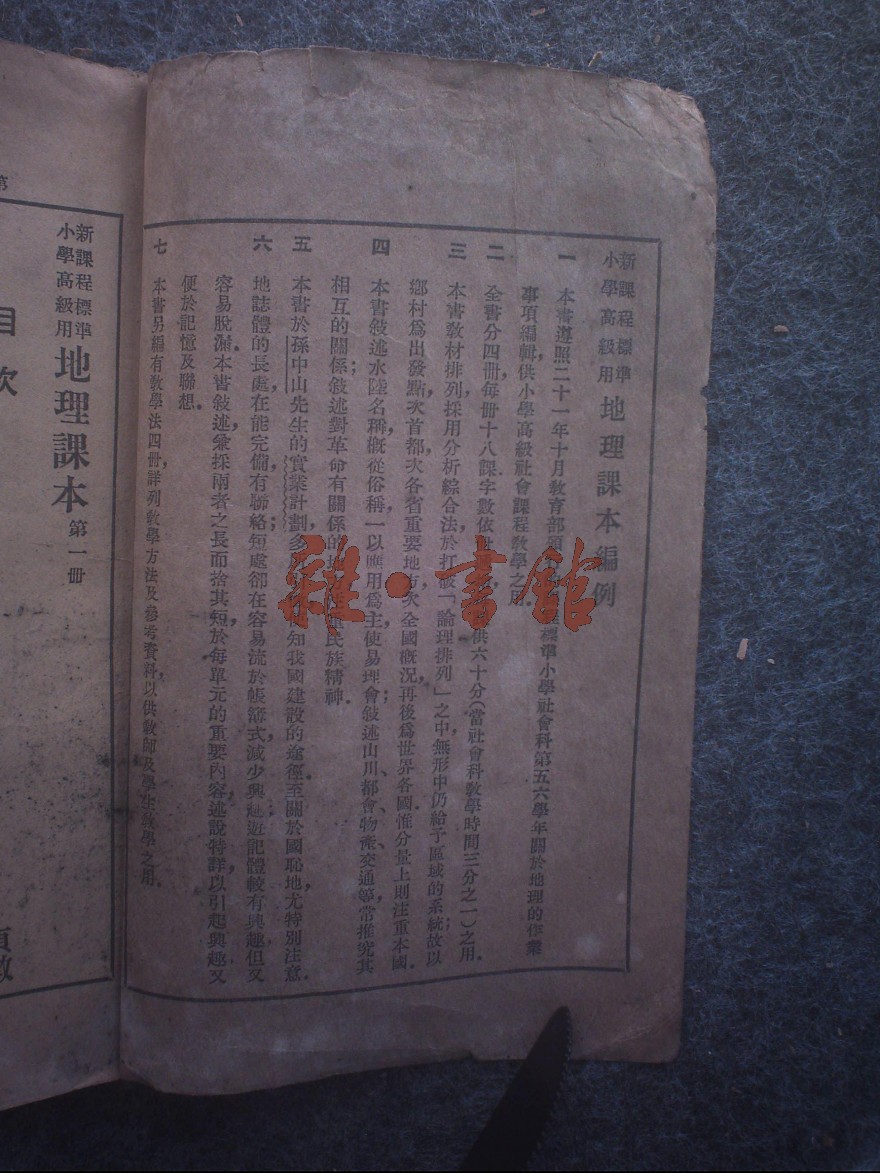 新課程標準
小學高級用
地理課本編例
一 本書遵照二十一年十月教育部頒 程標準小學社會科第五六學年關於地理的作業
事項編輯，供小學高級社會課程教學之用。
二 全書分四冊，每冊十八課，字數依 供六十分（當社會科教學時間三分之一）之用。
三 本書教材排列，採用分析綜合法，於打破「論理排列」之中，無形中仍給予區域的系統；故以
鄉村爲出發點，次首都，次各省重要地方，次全國概況，再後爲世界各國，惟分量上則注重本國。
四 本書敍述水陸名稱，概從俗稱，一以應用爲主，使易理會；敍述山川、都會、物產、交通等，常推究其
相互的關係；敍述對革命有關係的 民族精神。
五 本書於孫中山先生的實業計劃，多 知我國建設的途徑。至關於國恥地，尤特別注意。
六 地誌體的長處，在能完備，有聯絡；短處卻在容易流於帳簿式，減少興趣。遊記體較有興趣，但又
容易脫漏。本書敍述，兼採兩者之長而捨其短，於每單元的重要內容，述說特詳，以引起興趣，又
便於記憶及聯想。
七 本書另編有教學法四冊，詳列教學方法及參考資料，以供教師及學生教學之用。
新課程標準
小學高級用
地理課本 第一冊
目次
頁數
第
雜·書館